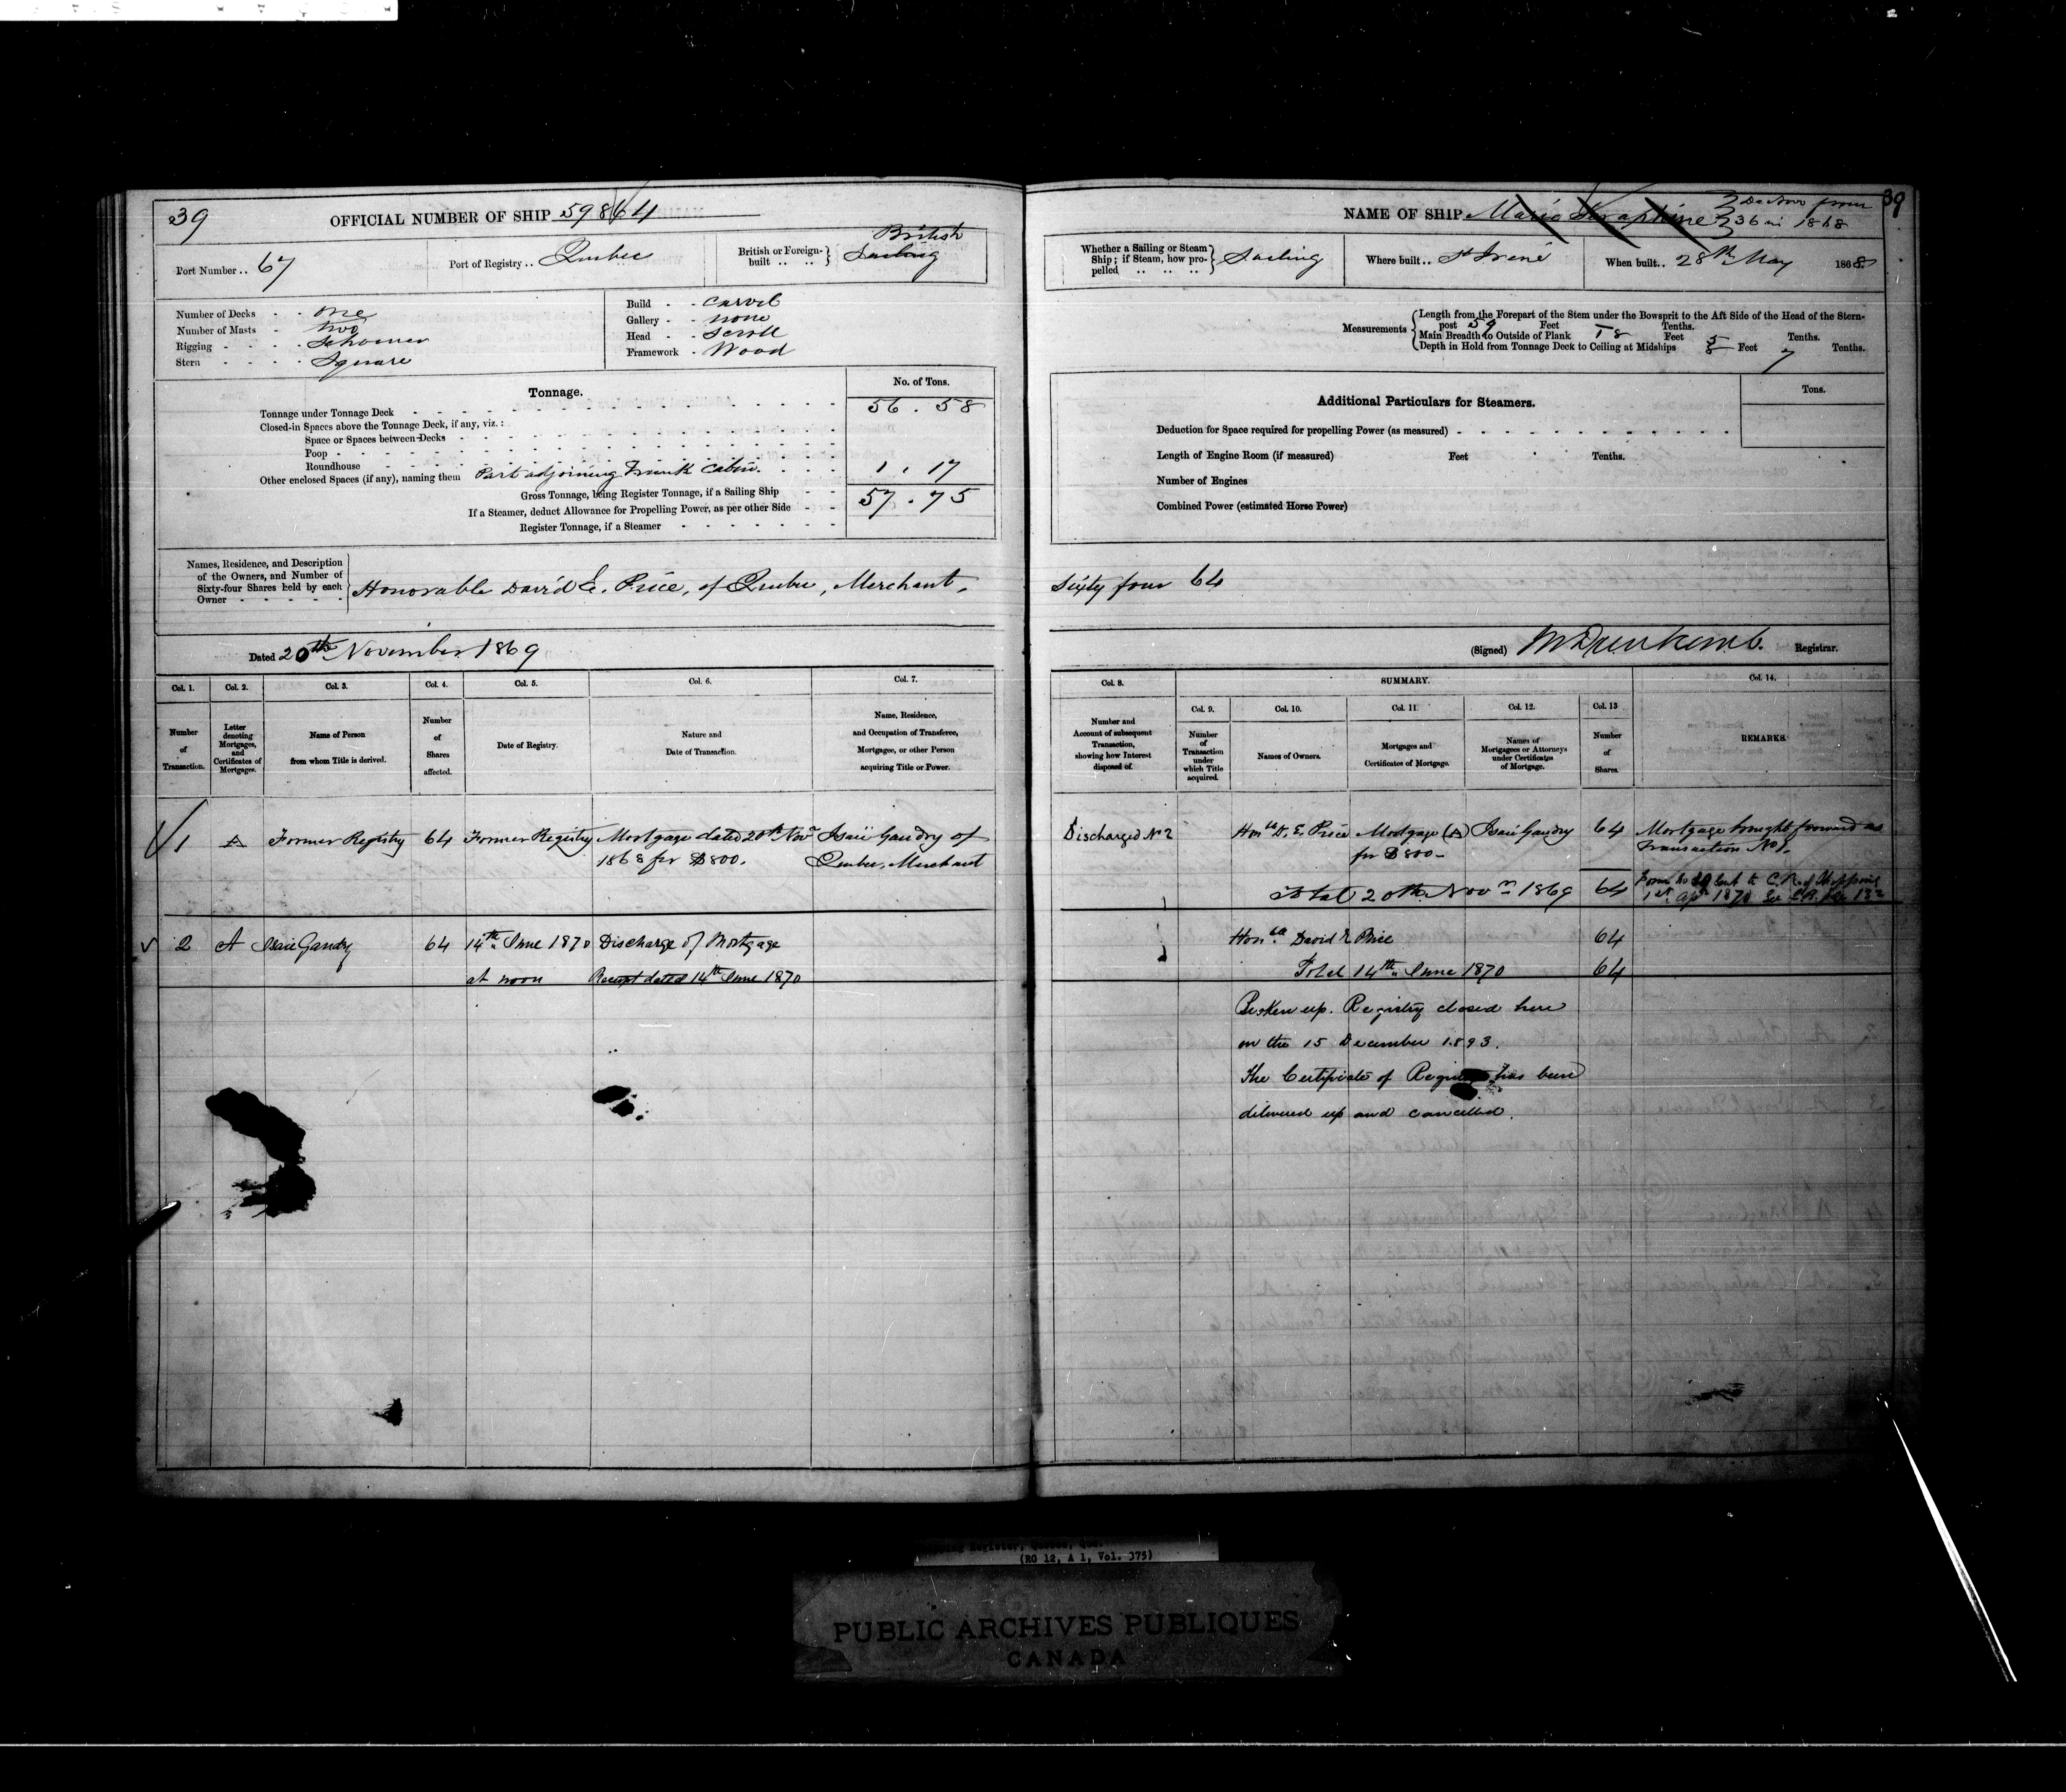 39
OFFICIAL NUMBER OF SHIP 59864
Port Number .. 67
Port of Registry .. Quebec
British or Foreign-built .. .. British
Sailing
Number of Decks - - one
Number of Masts - two
Rigging - - - - Schooner
Stern - - - - Square
Build - - Carvel
Gallery - - none
Head - - Scroll
Framework - Wood
Tonnage.
No. of Tons.
Tonnage under Tonnage Deck 56 . 58
Closed-in Spaces above the Tonnage Deck, if any, viz. :
Space or Spaces between Decks
Poop
Roundhouse
Other enclosed Spaces (if any), naming them Part adjoining Trunk Cabin. 1 . 17
Gross Tonnage, being Register Tonnage, if a Sailing Ship 57 . 75
If a Steamer, deduct Allowance for Propelling Power, as per other Side
Register Tonnage, if a Steamer
Names, Residence, and Description
of the Owners, and Number of
Sixty-four Shares held by each
Owner
Honorable David E. Price, of Quebec, Merchant,
Dated 20th November 1869
Col. 1. Col. 2. Col. 3. Col. 4. Col. 5. Col. 6. Col. 7.
Number of Transaction.
Letter denoting Mortgages, and Certificates of Mortgages.
Name of Person from whom Title is derived.
Number of Shares affected.
Date of Registry.
Nature and Date of Transaction.
Name, Residence, and Occupation of Transferee, Mortgagee, or other Person acquiring Title or Power.
1 A Former Registry 64 Former Registry Mortgage dated 20th Novr Isaiï Gaudry of
1868 for $800. Quebec, Merchant
2 A Isaie Gaudry 64 14th June 1870 Discharge of Mortgage
at noon Receipt dated 14th June 1870
39
NAME OF SHIP Marie Seraphine
De Novo from
36 in 1868
Whether a Sailing or Steam Ship; if Steam, how propelled .. .. .. Sailing
Where built .. St Irené
When built .. 28th May 1868
Measurements
Length from the Forepart of the Stem under the Bowsprit to the Aft Side of the Head of the Stern-
post 59 Feet Tenths.
Main Breadth to Outside of Plank 18 Feet Tenths.
Depth in Hold from Tonnage Deck to Ceiling at Midships Feet 7 Tenths.
Additional Particulars for Steamers.
Tons.
Deduction for Space required for propelling Power (as measured)
Length of Engine Room (if measured) Feet Tenths.
Number of Engines
Combined Power (estimated Horse Power)
Sixty four 64
(Signed) Registrar.
Col. 8. SUMMARY. Col. 14.
Col. 9. Col. 10. Col. 11. Col. 12. Col. 13
Number and Account of subsequent Transaction, showing how Interest disposed of.
Number of Transaction under which Title acquired.
Names of Owners.
Mortgages and Certificates of Mortgage.
Names of Mortgagees or Attorneys under Certificates of Mortgage.
Number of Shares.
REMARKS.
Discharged No 2 Honble D. E. Price Mortgage (A) Isaiï Gaudry 64 Mortgage brought forward as
for $800 - Transaction No 1.
Total 20th Novr 1869 64 Form No 19 sent to C. R. of Shipping
1st Apr 1870 See
Honble David E Price 64
Total 14th June 1870 64
Broken up. Registry closed here
on the 15 December 1893.
The Certificate of Registry has been
delivered up and cancelled.
Register, Quebec, Que.
(RG 12, A 1, Vol. 375)
PUBLIC ARCHIVES PUBLIQUES
CANADA